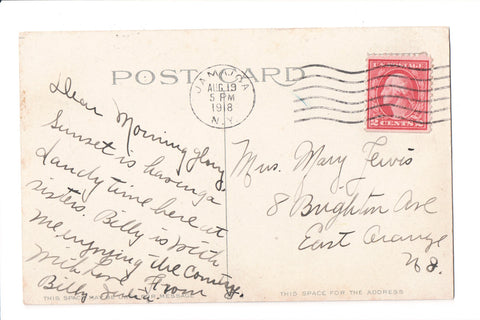 POST CARD
JAMAICA
AUG 19
5 PM
1918
N.Y.
U.S. POSTAGE
2 CENTS 2
Dear Morning glory
Sunset is having a
dandy time here at
sisters. Billy is with
me enjoying the country.
With love from
Billy
Mrs. Mary
8 Brighton Ave
East Orange
N J.
THIS SPACE MAY BE MESSAGE
THIS SPACE FOR THE ADDRESS